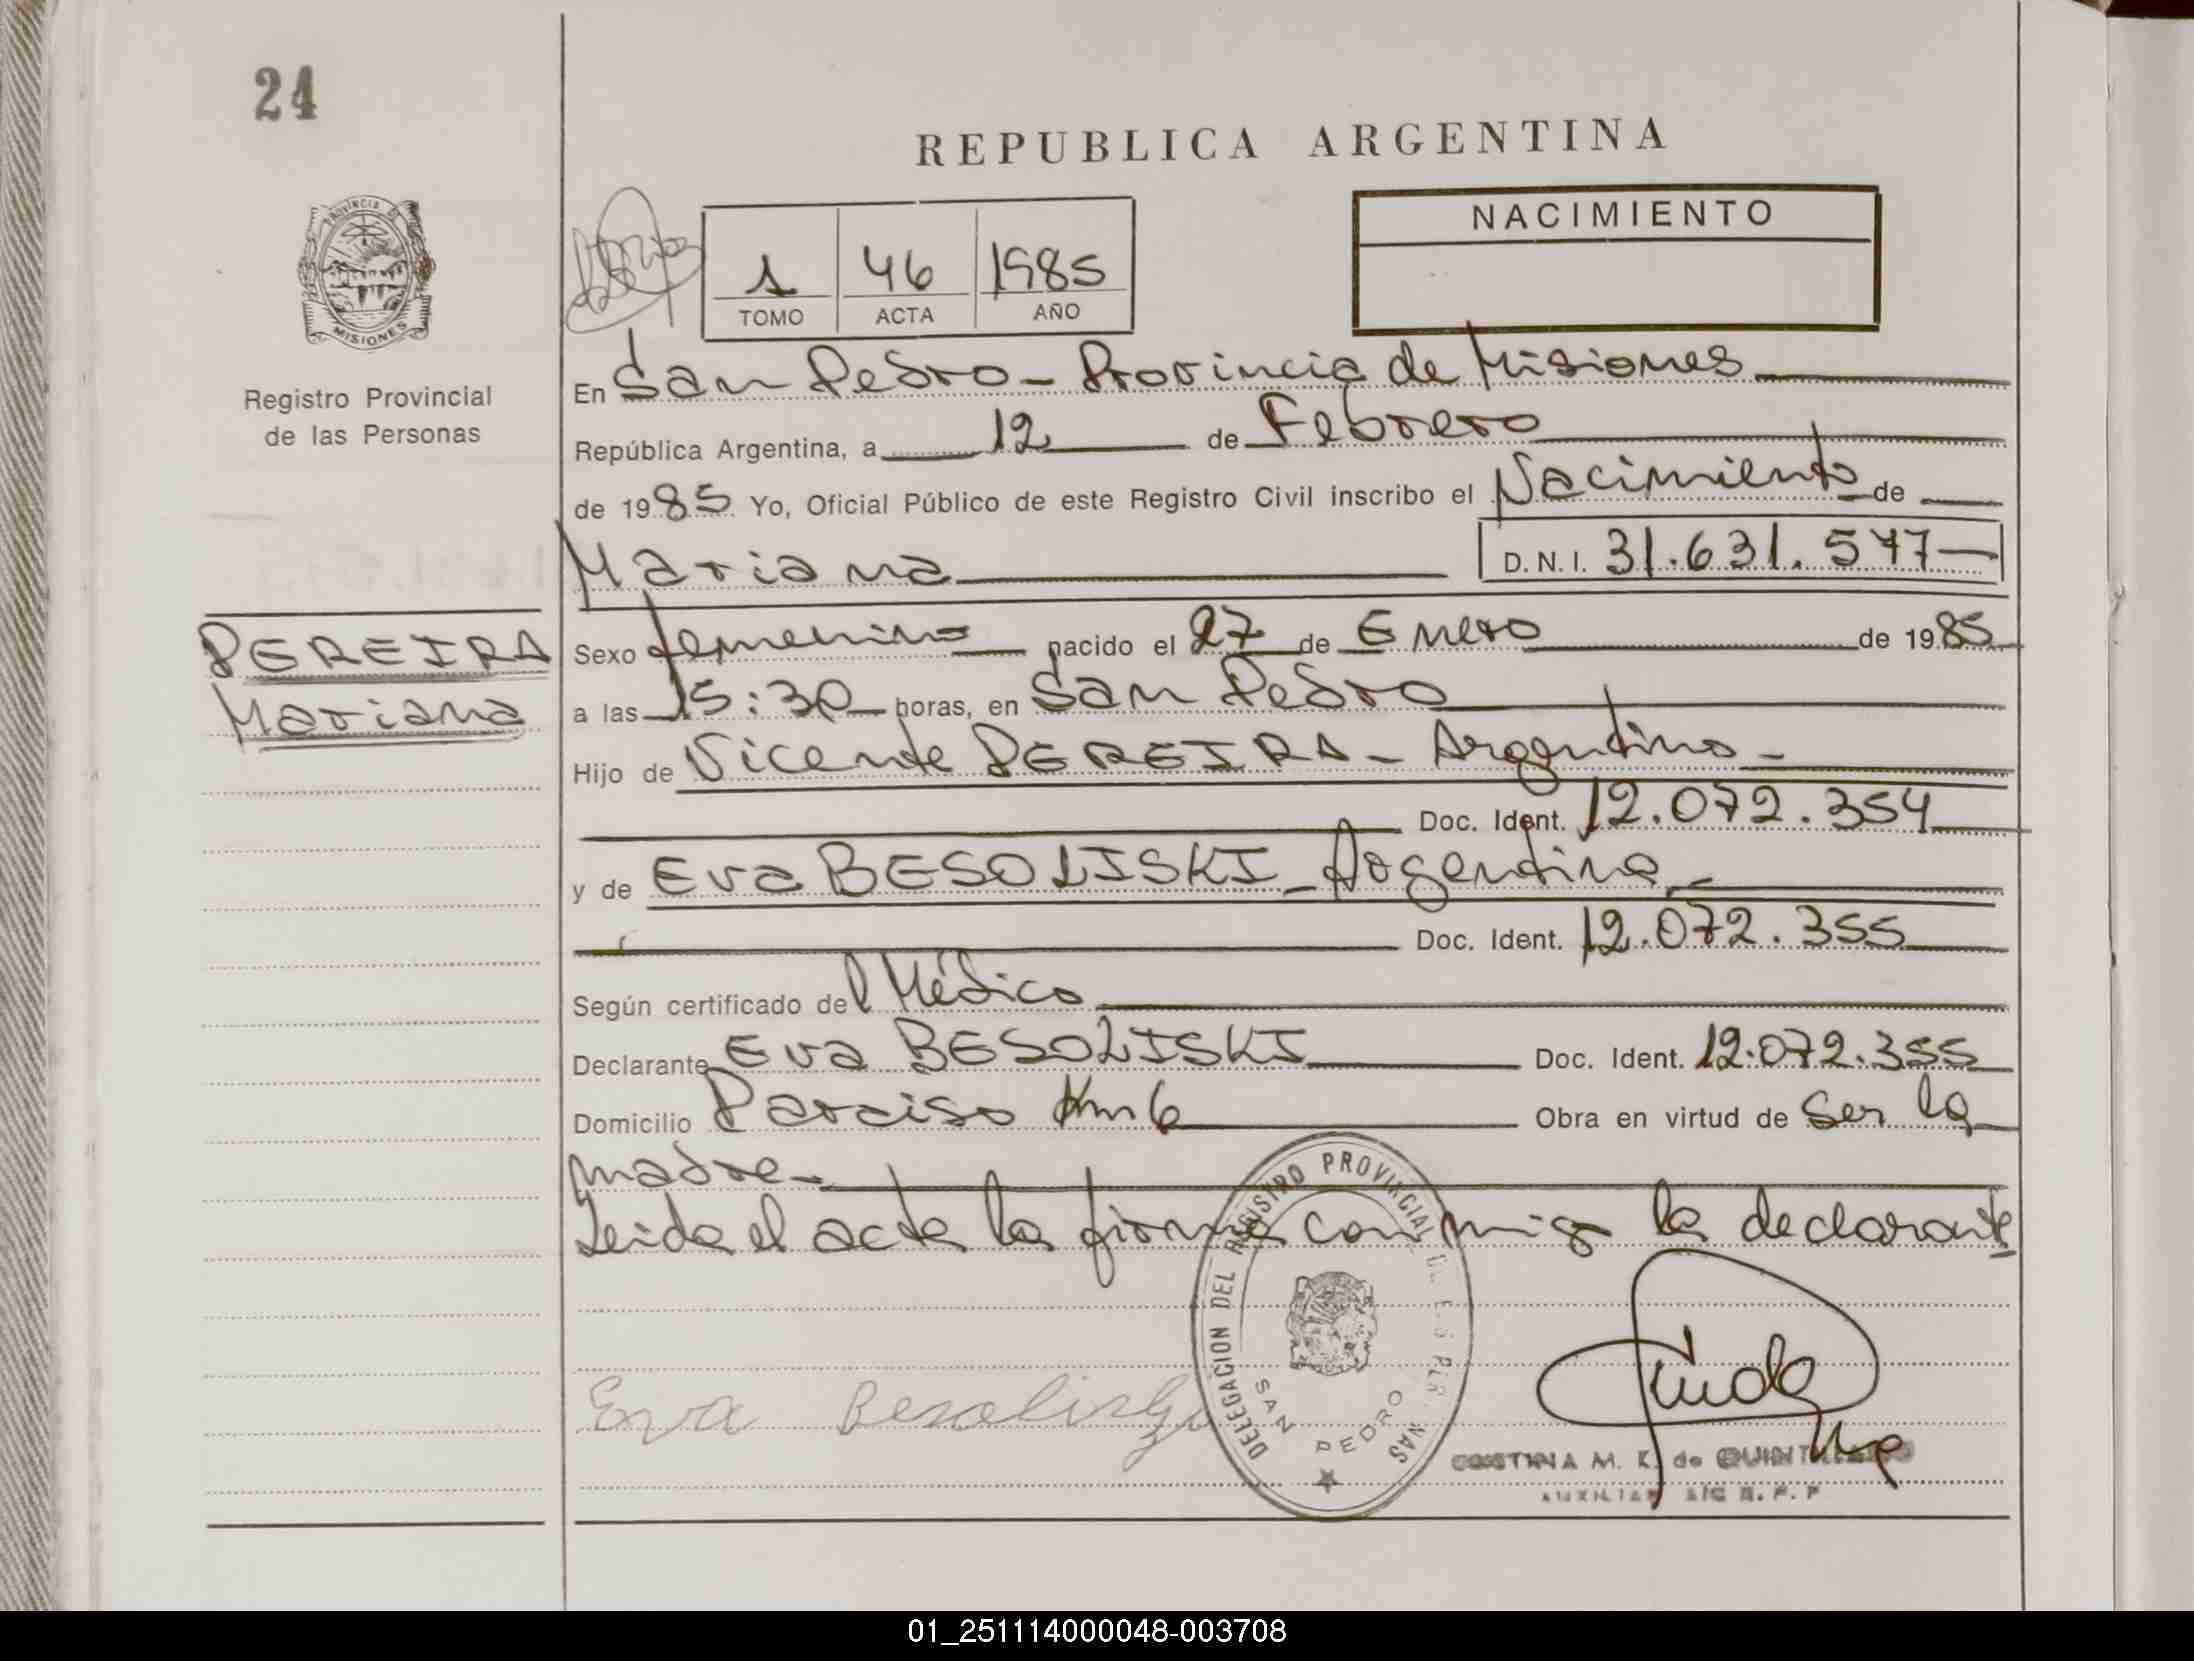 24
REPUBLICA ARGENTINA
PROVINCIA DE
MISIONES
NACIMIENTO
1 46 1985
TOMO ACTA AÑO
Registro Provincial
de las Personas
En San Pedro - Provincia de Misiones
República Argentina, a 12 de Febrero
de 1985 Yo, Oficial Público de este Registro Civil inscribo el Nacimiento de
Mariana D.N.I. 31.631.577
PEREIRA
Mariana
Sexo femenino nacido el 27 de Enero de 1985
a las 15:30 horas, en San Pedro
Hijo de Vicente PEREIRA - Argentino -
Doc. Ident. 12.072.354
y de Eva BESOLISKI - Argentina -
Doc. Ident. 12.072.355
Según certificado del Médico
Declarante Eva BESOLISKI Doc. Ident. 12.072.355
Domicilio Paraiso Km 6 Obra en virtud de ser la
madre -
Leida el acta la firma conmigo la declarante
DELEGACION DEL REGISTRO PROVINCIAL DE LAS PERSONAS
SAN PEDRO
Eva Besolisky
CRISTINA M. K. de
AUXILIAR
01_251114000048-003708